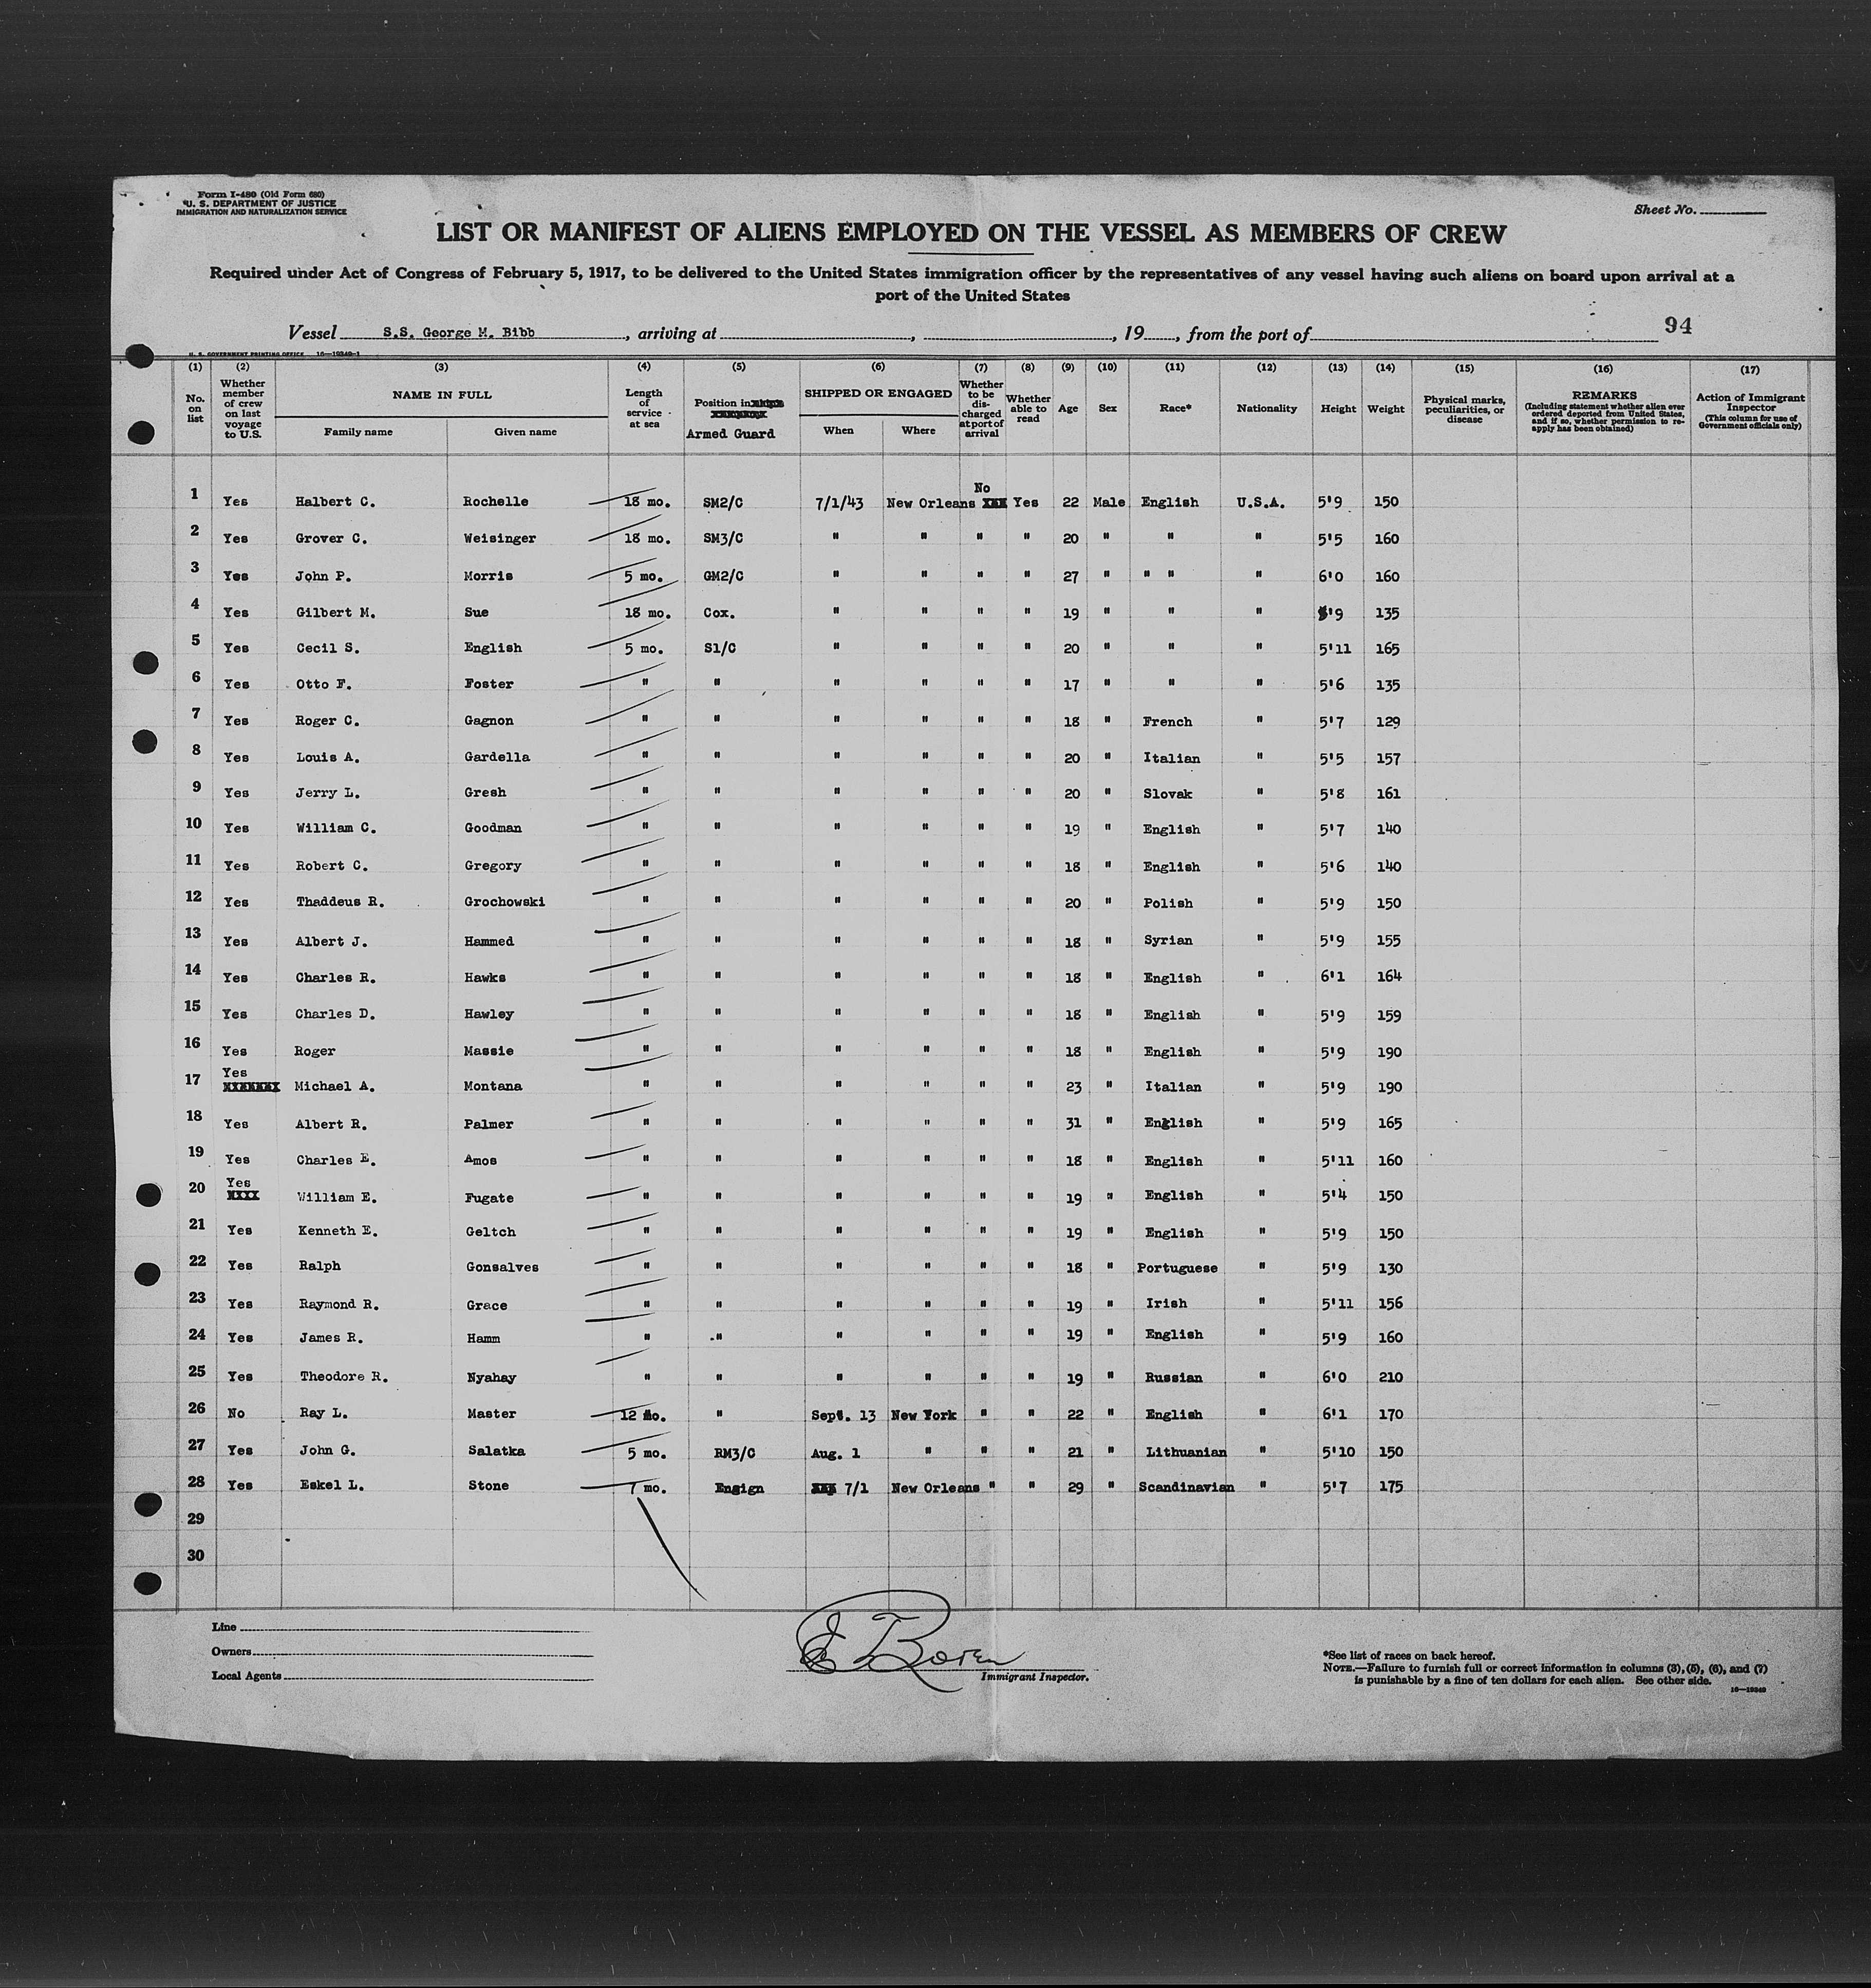 Form I-480 (Old Form 680)
U. S. DEPARTMENT OF JUSTICE
IMMIGRATION AND NATURALIZATION SERVICE
Sheet No.
LIST OR MANIFEST OF ALIENS EMPLOYED ON THE VESSEL AS MEMBERS OF CREW
Required under Act of Congress of February 5, 1917, to be delivered to the United States immigration officer by the representatives of any vessel having such aliens on board upon arrival at a
port of the United States
Vessel S.S. George M. Bibb, arriving at , , 19 , from the port of 94
U. S. GOVERNMENT PRINTING OFFICE 16—19349-1
(1) (2) (3) (4) (5) (6) (7) (8) (9) (10) (11) (12) (13) (14) (15) (16) (17)
No. on list
Whether member of crew on last voyage to U.S.
NAME IN FULL
Family name Given name
Length of service at sea
Position in
Armed Guard
SHIPPED OR ENGAGED
When Where
Whether to be discharged at port of arrival
Whether able to read
Age
Sex
Race*
Nationality
Height
Weight
Physical marks, peculiarities, or disease
REMARKS
(Including statement whether alien ever ordered deported from United States, and if so, whether permission to reapply has been obtained)
Action of Immigrant Inspector
(This column for use of Government officials only)
1 Yes Halbert C. Rochelle 18 mo. SM2/C 7/1/43 New Orleans No Yes 22 Male English U.S.A. 5'9 150
2 Yes Grover C. Weisinger 18 mo. SM3/C " " " " 20 " " " 5'5 160
3 Yes John P. Morris 5 mo. GM2/C " " " " 27 " " " " 6'0 160
4 Yes Gilbert M. Sue 18 mo. Cox. " " " " 19 " " " 5'9 135
5 Yes Cecil S. English 5 mo. S1/C " " " " 20 " " " 5'11 165
6 Yes Otto F. Foster " " " " " " 17 " " " 5'6 135
7 Yes Roger C. Gagnon " " " " " " 18 " French " 5'7 129
8 Yes Louis A. Gardella " " " " " " 20 " Italian " 5'5 157
9 Yes Jerry L. Gresh " " " " " " 20 " Slovak " 5'8 161
10 Yes William C. Goodman " " " " " " 19 " English " 5'7 140
11 Yes Robert C. Gregory " " " " " " 18 " English " 5'6 140
12 Yes Thaddeus R. Grochowski " " " " " " 20 " Polish " 5'9 150
13 Yes Albert J. Hammed " " " " " " 18 " Syrian " 5'9 155
14 Yes Charles R. Hawks " " " " " " 18 " English " 6'1 164
15 Yes Charles D. Hawley " " " " " " 18 " English " 5'9 159
16 Yes Roger Massie " " " " " " 18 " English " 5'9 190
17 Yes Michael A. Montana " " " " " " 23 " Italian " 5'9 190
18 Yes Albert R. Palmer " " " " " " 31 " English " 5'9 165
19 Yes Charles E. Amos " " " " " " 18 " English " 5'11 160
20 Yes William E. Fugate " " " " " " 19 " English " 5'4 150
21 Yes Kenneth E. Geltch " " " " " " 19 " English " 5'9 150
22 Yes Ralph Gonsalves " " " " " " 18 " Portuguese " 5'9 130
23 Yes Raymond R. Grace " " " " " " 19 " Irish " 5'11 156
24 Yes James R. Hamm " " " " " " 19 " English " 5'9 160
25 Yes Theodore R. Nyahay " " " " " " 19 " Russian " 6'0 210
26 No Ray L. Master 12 mo. " Sept. 13 New York " " 22 " English " 6'1 170
27 Yes John G. Salatka 5 mo. RM3/C Aug. 1 " " " 21 " Lithuanian " 5'10 150
28 Yes Eskel L. Stone 7 mo. Ensign 7/1 New Orleans " " 29 " Scandinavian " 5'7 175
29
30
Line
Owners
Local Agents
Immigrant Inspector.
*See list of races on back hereof.
NOTE.—Failure to furnish full or correct information in columns (3), (5), (6), and (7)
is punishable by a fine of ten dollars for each alien. See other side.
16—19349